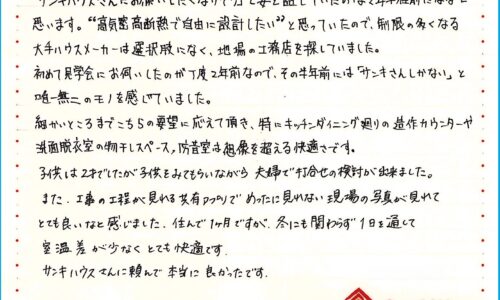 思います。"高気密高断熱で自由に設計したい"と思っていたので、制限の多くなる
大手ハウスメーカーは選択肢になく、地場の工務店を探していました。
初めて見学会にお伺いしたのが丁度2年前なので、その半年前には「サンキさんしかない」と
唯一無二のモノを感じていました。
細かいところまでこちらの要望に応えて頂き、特にキッチンダイニング廻りの造作カウンターや
洗面脱衣室の物干しスペース、防音室は想像を超える快適さです。
子供は2才でしたが子供をみてもらいながら夫婦で打合せの検討が出来ました。
また、工事の工程が見れる共有アプリでめったに見れない現場の写真が見れて
とても良いなと感じました。住んで1ヶ月ですが、冬にも関わらず1日を通して
室温差が少なくとても快適です。
サンキハウスさんに頼んで本当に良かったです。